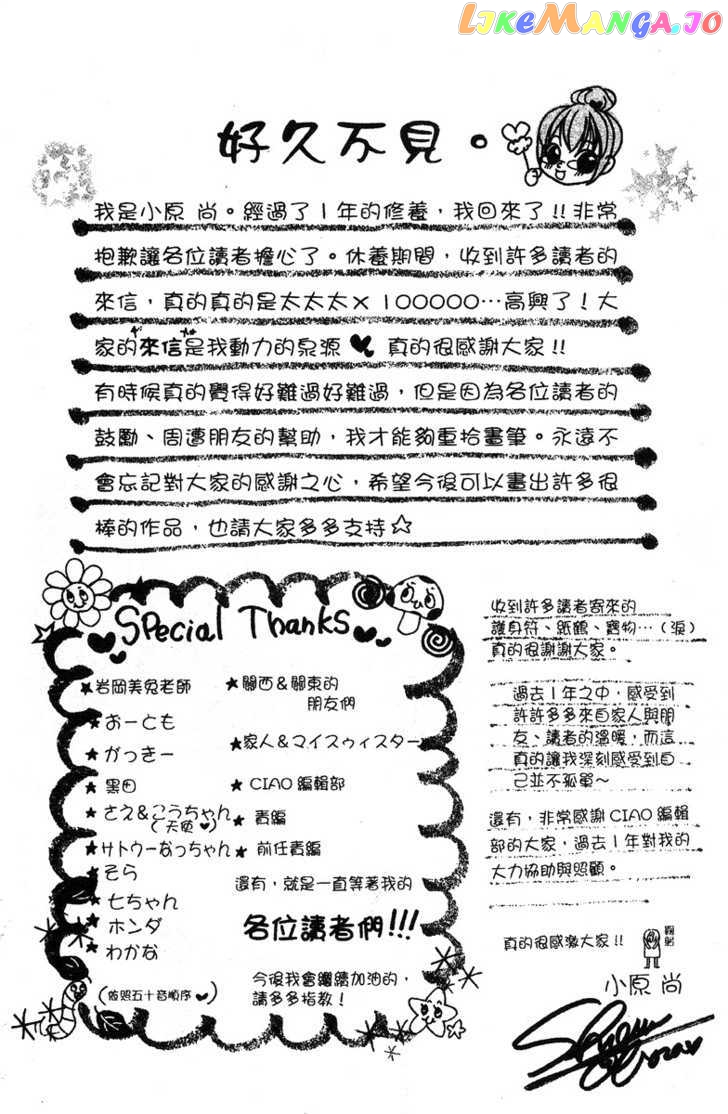 LIKEMANGA.IO
好久不見。
我是小原 尚。經過了1年的修養，我回來了!!非常
抱歉讓各位讀者擔心了。休養期間，收到許多讀者的
來信，真的真的是太太太×100000…高興了！大
家的來信是我動力的泉源♥ 真的很感謝大家!!
有時候真的覺得好難過好難過，但是因為各位讀者的
鼓勵、周遭朋友的幫助，我才能夠重拾畫筆。永遠不
會忘記對大家的感謝之心，希望今後可以畫出許多很
棒的作品，也請大家多多支持☆
Special Thanks
★岩岡美兔老師
★おーとも
★がっきー
★黒田
★さえ&こうちゃん
(天使♥)
★サトゥーなっちゃん
★そら
★七ちゃん
★ホンダ
★わかな
(依照五十音順序♥)
★關西&關東的
朋友們
★家人&マイスウィスター
★CIAO編輯部
★責編
★前任責編
還有，就是一直等著我的
各位讀者們!!!
今後我會繼續加油的，
請多多指教！
收到許多讀者寄來的
護身符、紙鶴、寶物…(淚)
真的很謝謝大家。
過去1年之中，感受到
許許多多來自家人與朋
友、讀者的溫暖，而這
真的讓我深刻感受到自
己並不孤單～
還有，非常感謝CIAO編輯
部的大家，過去1年對我的
大力協助與照顧。
真的很感激大家!!
鞠躬
小原 尚